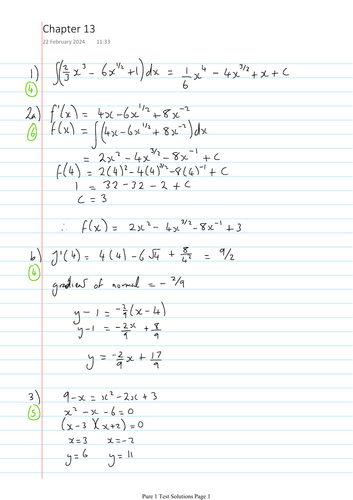 Chapter 13
22 February 2024 11:33
1) ∫(2/3 x³ - 6x^(1/2) + 1)dx = 1/6 x⁴ - 4x^(3/2) + x + c
④
2a) f'(x) = 4x - 6x^(1/2) + 8x⁻²
⑥ f(x) = ∫(4x - 6x^(1/2) + 8x⁻²)dx
= 2x² - 4x^(3/2) - 8x⁻¹ + c
f(4) = 2(4)² - 4(4)^(3/2) - 8(4)⁻¹ + c
1 = 32 - 32 - 2 + c
c = 3
∴ f(x) = 2x² - 4x^(3/2) - 8x⁻¹ + 3
b) f'(4) = 4(4) - 6√4 + 8/4² = 9/2
④
gradient of normal = - 2/9
y - 1 = -2/9(x - 4)
y - 1 = -2x/9 + 8/9
y = -2/9 x + 17/9
3) 9 - x = x² - 2x + 3
⑤ x² - x - 6 = 0
(x - 3)(x + 2) = 0
x = 3 x = -2
y = 6 y = 11
Pure 1 Test Solutions Page 1